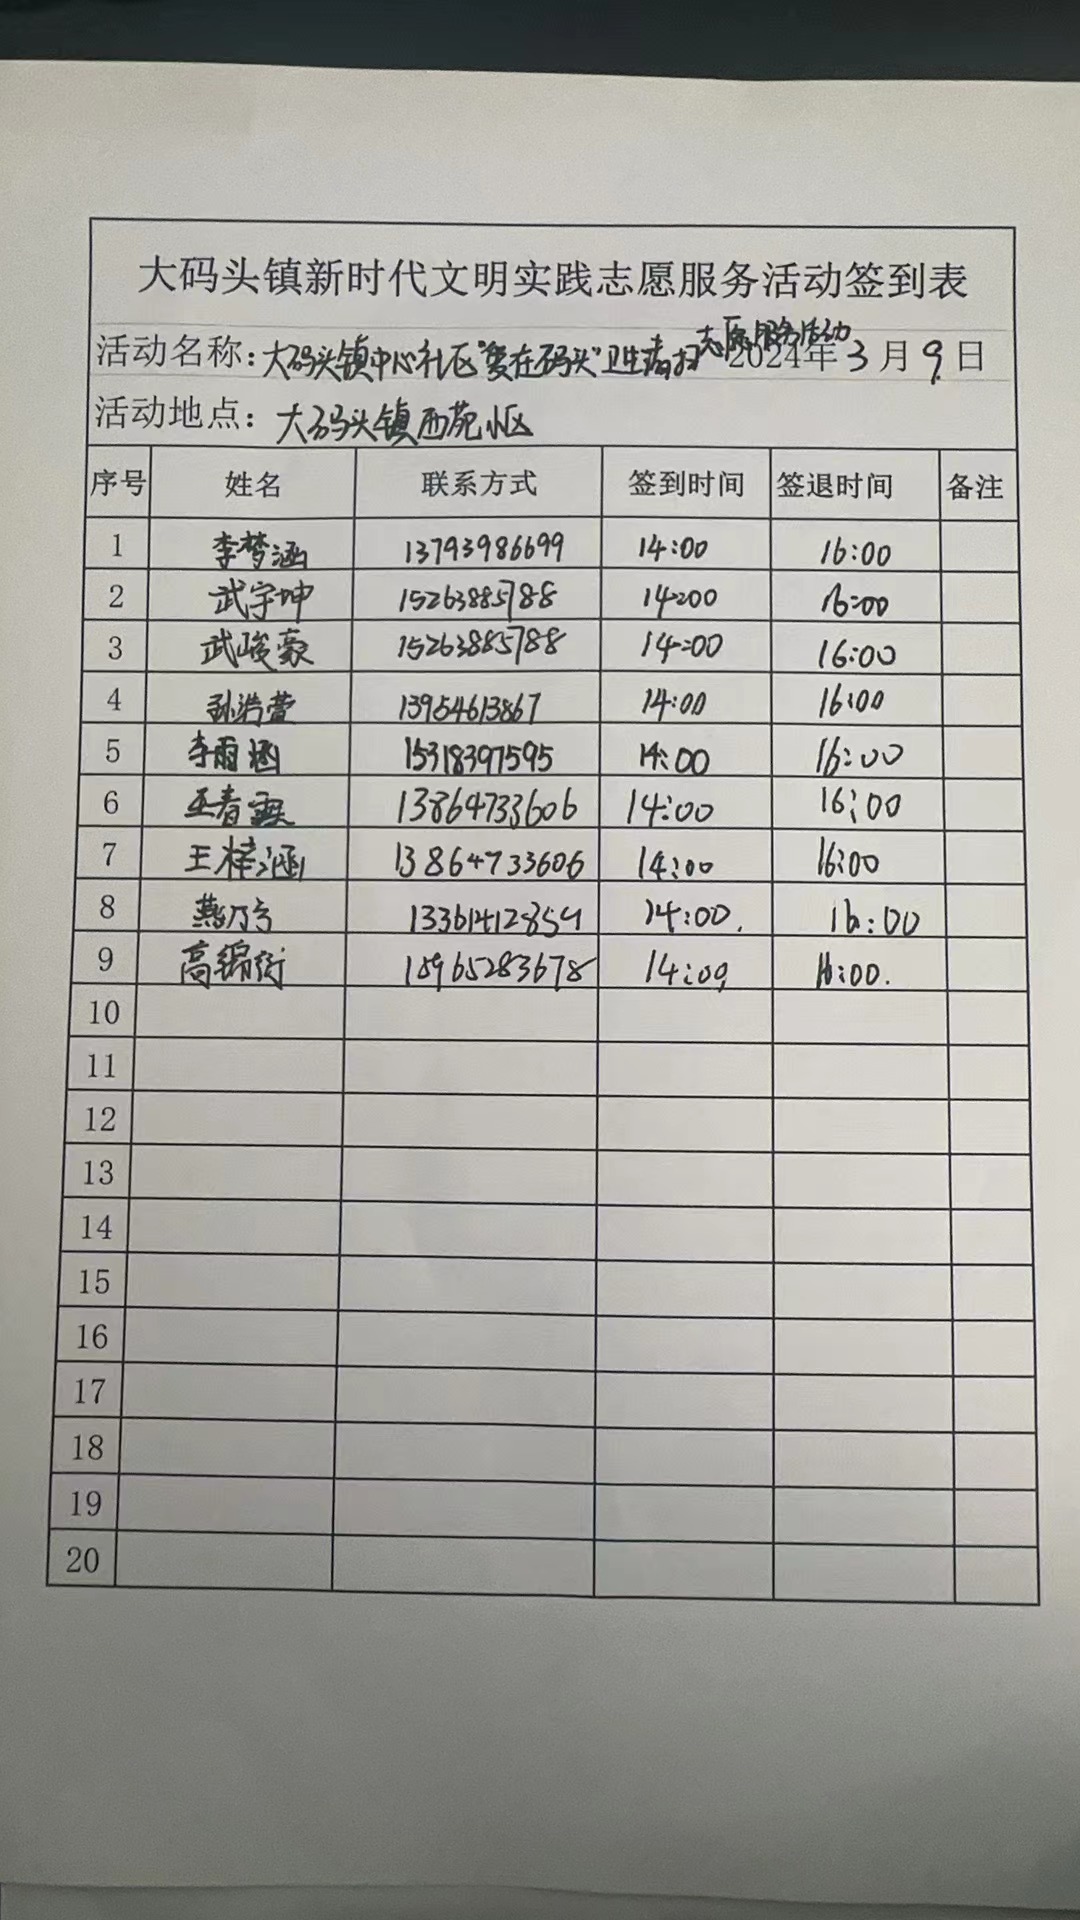 大码头镇新时代文明实践志愿服务活动签到表
活动名称：大码头镇中心社区"爱在码头"卫生清扫志愿服务活动 2024年3月9日
活动地点：大码头镇西苑小区
序号 姓名 联系方式 签到时间 签退时间 备注
1 李梦涵 13793986699 14:00 16:00
2 武宇坤 15263885788 14:00 16:00
3 武峻豪 15263885788 14:00 16:00
4 孙浩萱 13954613867 14:00 16:00
5 李雨涵 15318397595 14:00 16:00
6 王春霞 13864733606 14:00 16:00
7 王梓涵 13864733606 14:00 16:00
8 燕乃 13361412854 14:00. 16:00
9 高 18965283678 14:00 16:00.
10
11
12
13
14
15
16
17
18
19
20